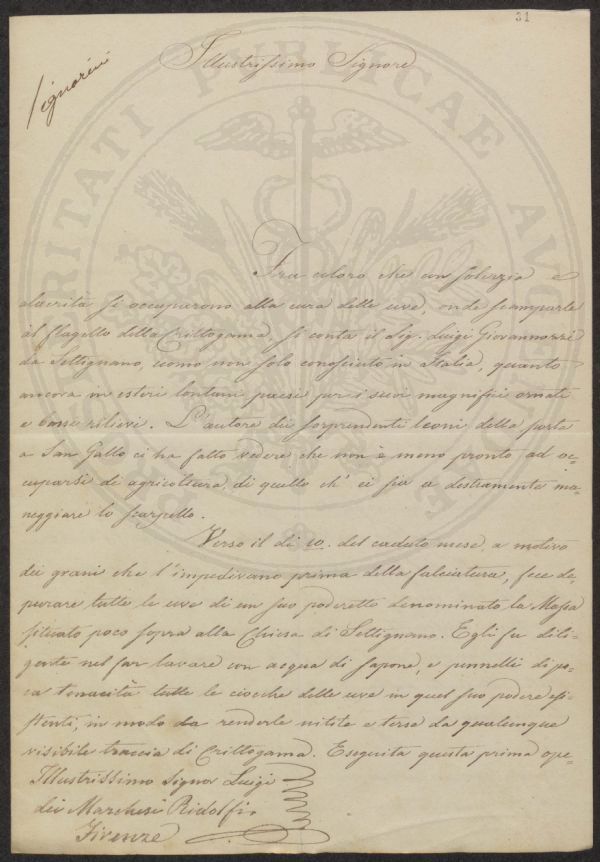 31
Signorini
Illustrissimo Signore
Fra coloro che con solerzia e
alacrità si occuparono alla cura delle uve, onde scamparle
al flagello della Crittogama, si conta il Sig. Luigi Giovannozzi
da Settignano, uomo non solo conosciuto in Italia, quanto
ancora in esteri lontani paesi per i suoi magnifici ornati
e bassi rilievi. L'autore dei sorprendenti leoni della porta
a San Gallo ci ha fatto vedere che non è meno pronto ad oc-
cuparsi di agricoltura, di quello ch' ei sia a destramente ma-
neggiare lo scarpello.
Verso il dì 10. del caduto mese, a motivo
dei grani che l'impedivano prima della falciatura, fece de-
purare tutte le uve di un suo poderetto denominato la Massa
situato poco sopra alla Chiesa di Settignano. Egli fu dili-
gente nel far lavare con acqua di sapone, e pennelli di po-
ca tenacità tutte le ciocche delle uve in quel suo podere esi-
stenti, in modo da renderle nitide e terse da qualunque
visibile traccia di Crittogama. Eseguita questa prima ope-
Illustrissimo Signor Luigi
dei Marchesi Ridolfi
Firenze
PROSPERITATI PUBLICAE AUGENDAE